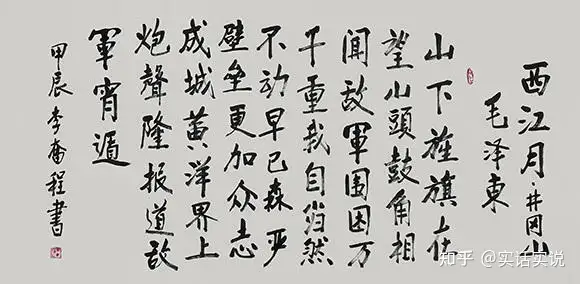 西江月·井冈山
毛泽东
山下旌旗在
望山頭鼓角相
闻敌軍围困万
千重我自岿然
不动早已森严
壁垒更加众志
成城黄洋界上
炮聲隆报道敌
軍宵遁
甲辰 李奮程書
知乎 @实话实说